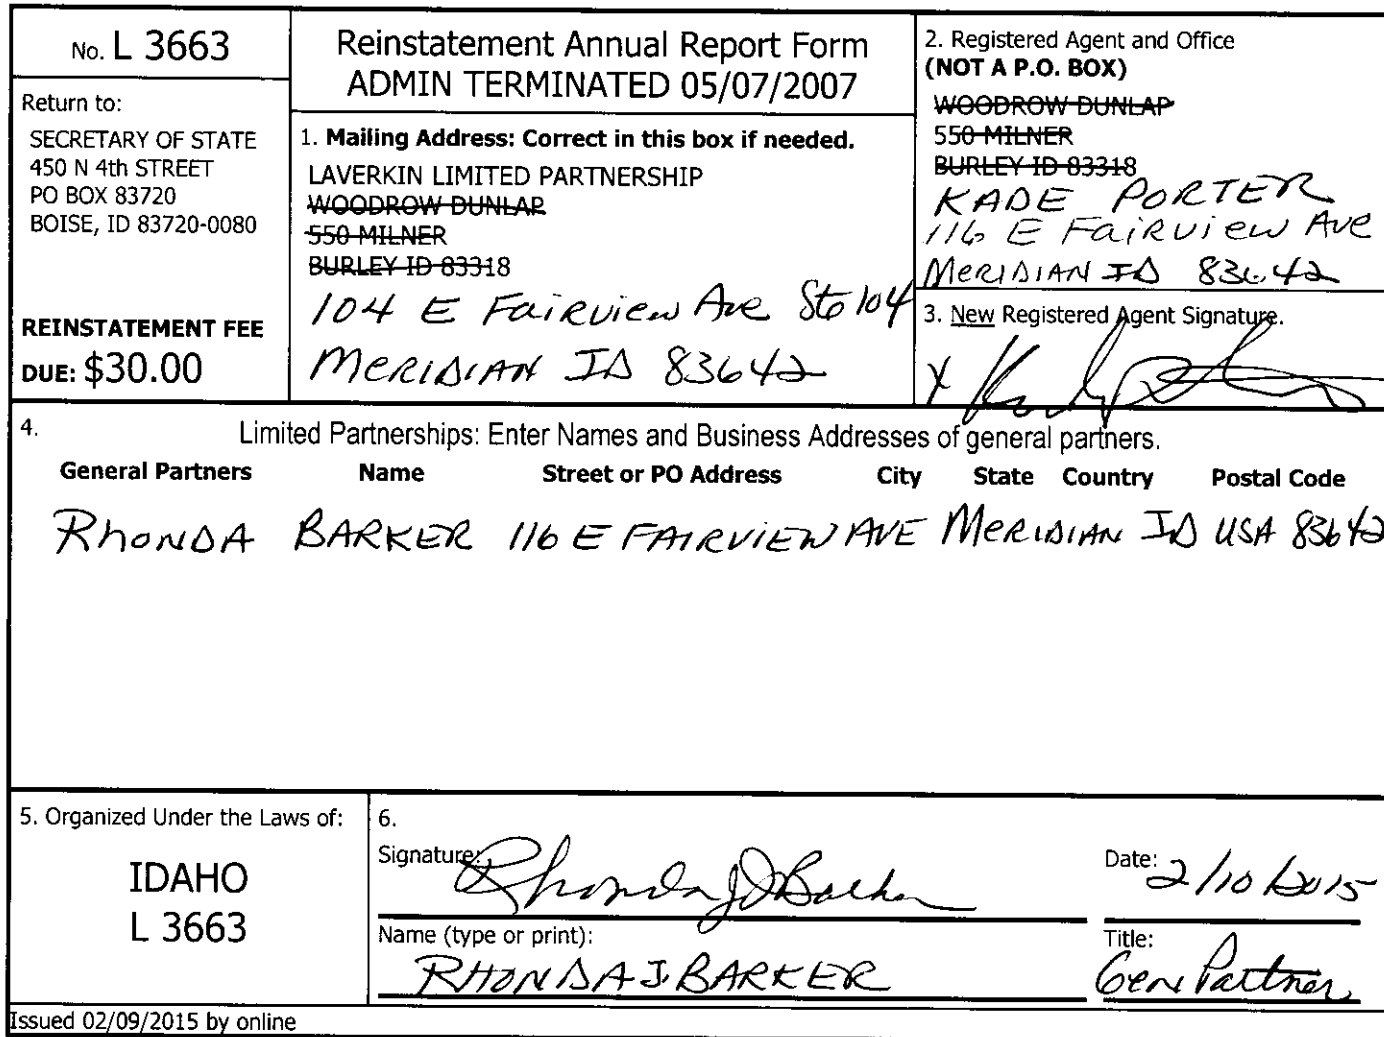 No. L 3663
Return to:
SECRETARY OF STATE
450 N 4th STREET
PO BOX 83720
BOISE, ID 83720-0080
REINSTATEMENT FEE
DUE: $30.00
Reinstatement Annual Report Form
ADMIN TERMINATED 05/07/2007
1. Mailing Address: Correct in this box if needed.
LAVERKIN LIMITED PARTNERSHIP
WOODROW DUNLAP
550 MILNER
BURLEY ID 83318
104 E Fairview Ave Ste 104
MERIDIAN ID 83642
2. Registered Agent and Office
(NOT A P.O. BOX)
WOODROW DUNLAP
550 MILNER
BURLEY ID 83318
KADE PORTER
116 E Fairview Ave
MERIDIAN ID 83642
3. New Registered Agent Signature.
X
4.
Limited Partnerships: Enter Names and Business Addresses of general partners.
General Partners Name Street or PO Address City State Country Postal Code
RhonDA BARKER 116 E FAIRVIEW AVE MERIDIAN ID USA 83642
5. Organized Under the Laws of:
IDAHO
L 3663
6.
Signature: Rhonda J Barker
Date: 2/10/2015
Name (type or print):
RHONDA J. BARKER
Title:
Gen Partner
Issued 02/09/2015 by online